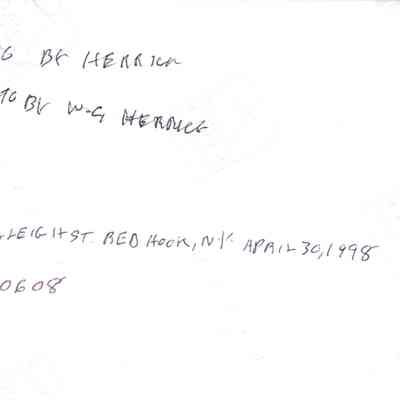 G BY HERRICK
TO BY W-G HERRICK
LEIGH ST. RED HOOK, N.Y. APRIL 30, 1998
0608